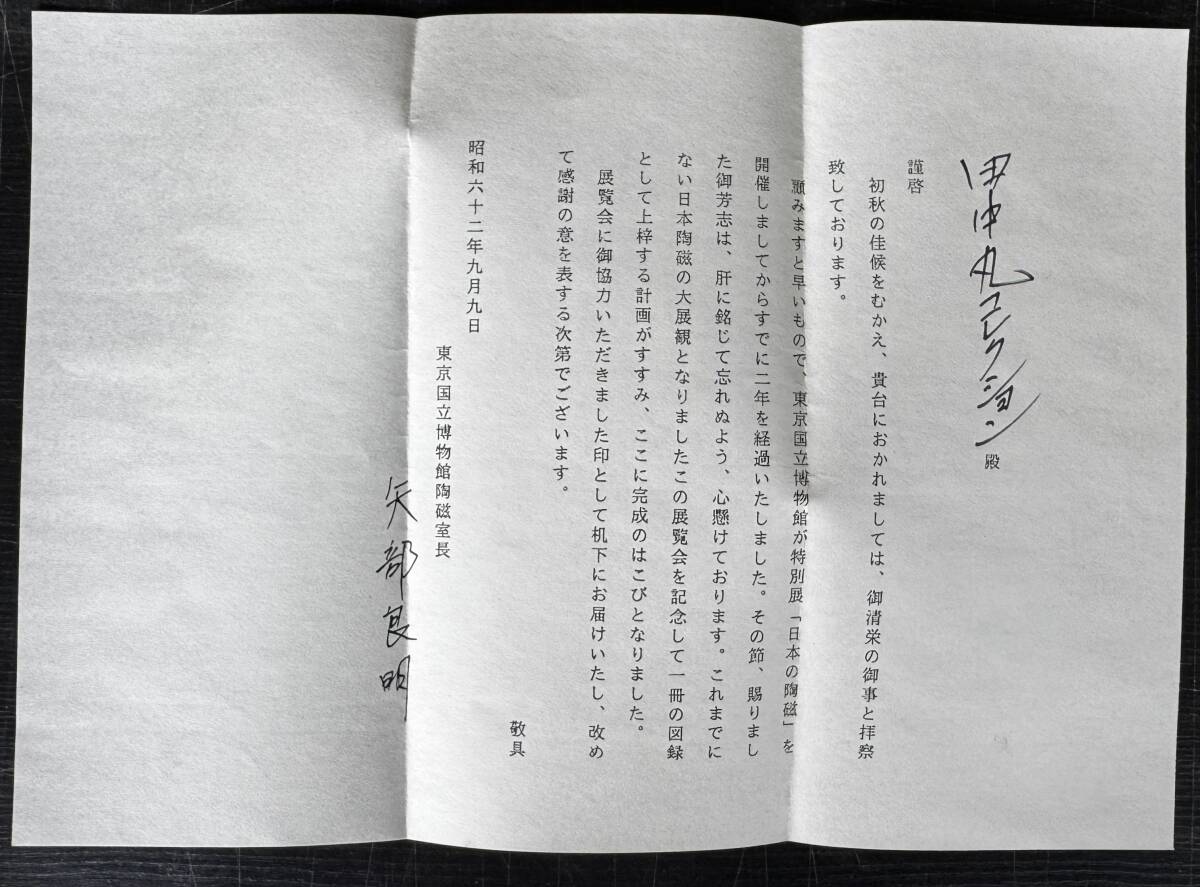 田中丸コレクション 殿
謹啓
初秋の佳候をむかえ、貴台におかれましては、御清栄の御事と拝察
致しております。
顧みますと早いもので、東京国立博物館が特別展「日本の陶磁」を
開催しましてからすでに二年を経過いたしました。その節、賜りまし
た御芳志は、肝に銘じて忘れぬよう、心懸けております。これまでに
ない日本陶磁の大展観となりましたこの展覧会を記念して一冊の図録
として上梓する計画がすすみ、ここに完成のはこびとなりました。
展覧会に御協力いただきました印として机下にお届けいたし、改め
て感謝の意を表する次第でございます。
敬具
昭和六十二年九月九日
東京国立博物館陶磁室長
矢部良明